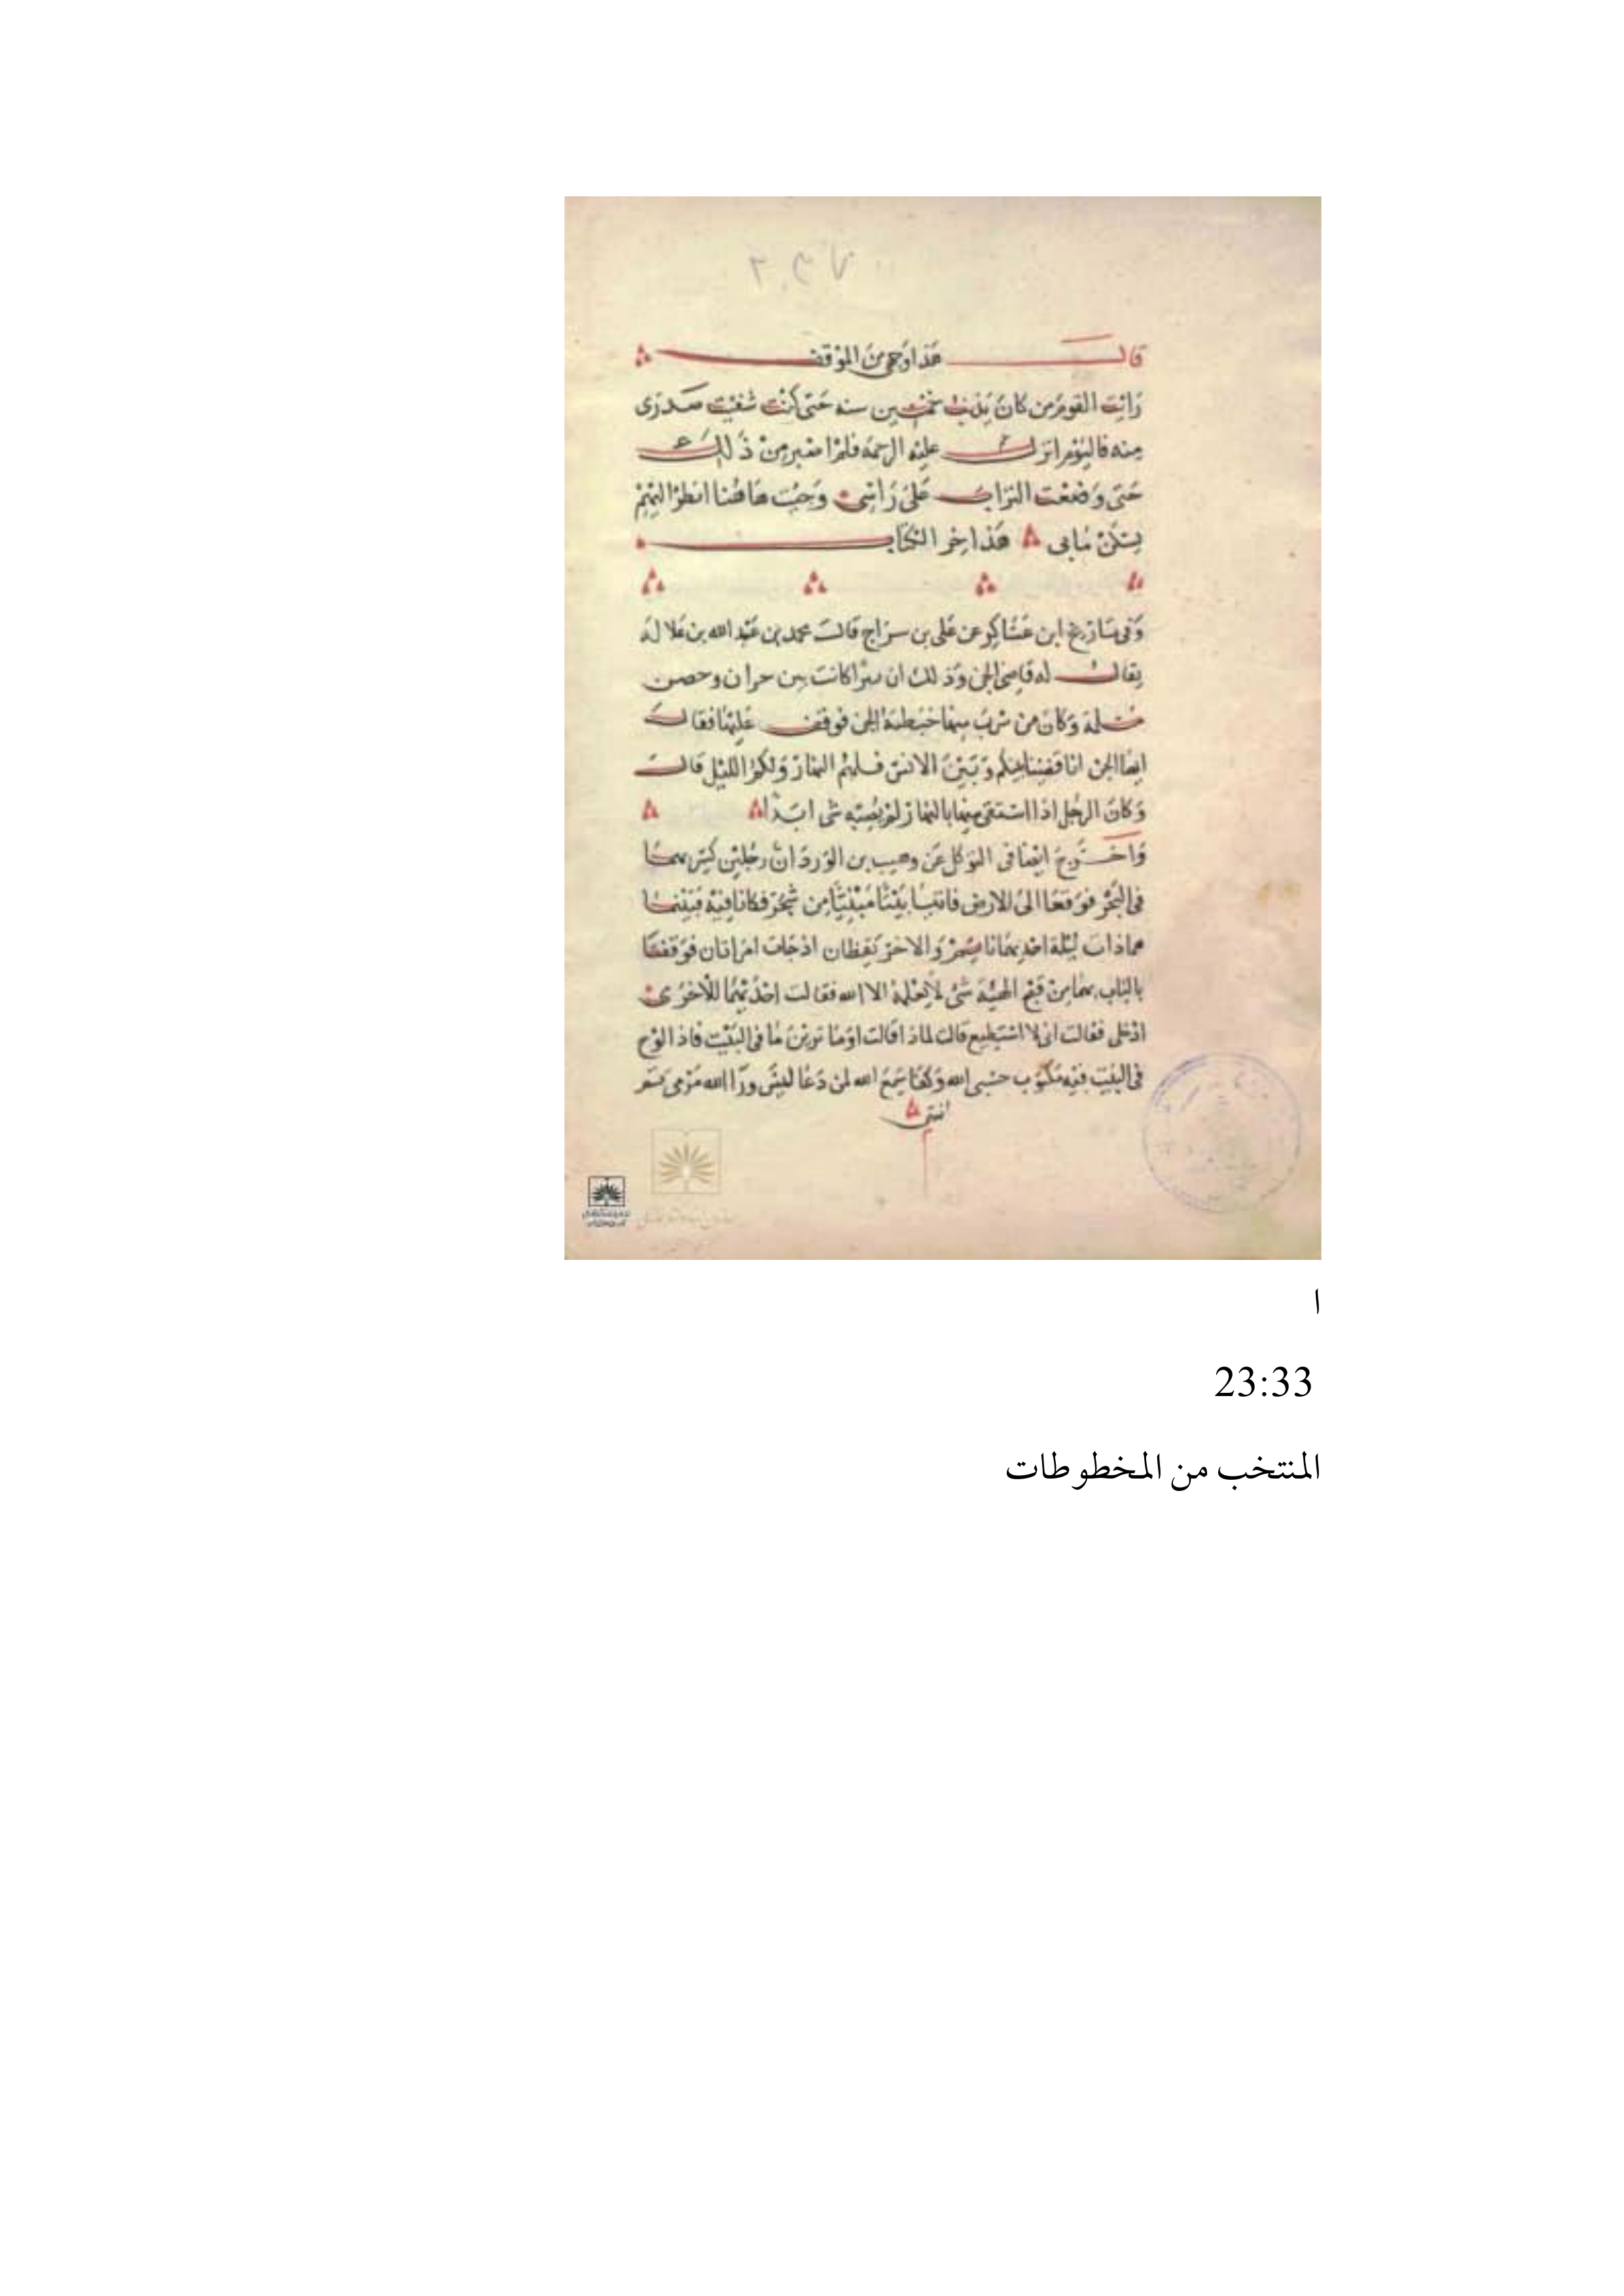 قال هذا وحى من الموقف
رايت القوم من كان يذنب خمسين سنه حتى كنت شفيت صدرى
منه فاليوم انزلت عليه الرحمة فلم اصبر من ذلك
حتى وضعت التراب على راسى وجيت هاهنا انظر اليهم
يسكن ما بى هذا اخر الكتاب
وفى تاريخ ابن عساكر عن على بن سراج قال محمد بن عبد الله بن علاثه
يقال له قاضى الجن وذلك ان بيرا كانت بين حران وحصن
مسلمة وكان من شرب منها خبطته الجن فوقف عليها فقال
ايها الجن انا قضينا بينكم وبين الانس فلهم النهار ولكم الليل قال
وكان الرجل اذا استقى منها بالنهار لم يصبه شى ابدا
واخرج ايضا فى التوكل عن وهيب بن الورد ان رجلين كسر بهما
فى البحر فوقعا الى الارض فاتيا بيتا مبنيا من شجر فكانا فيه فبينما
هما ذات ليلة احدهما نايم والاخر يقظان اذ جات امراتان فوقفتا
بالباب بهما من قبح الهيئة شى لا يعلمه الا الله فقالت احديهما للاخرى
ادخلى فقالت انى لا استطيع قالت لماذا قالت اوما ترين ما فى البيت فاذ الوح
فى البيت فيه مكتوب حسبى الله وكفا سمع الله لمن دعا ليس ورا الله مرمى
انتهى
ا
23:33
المنتخب من المخطوطات